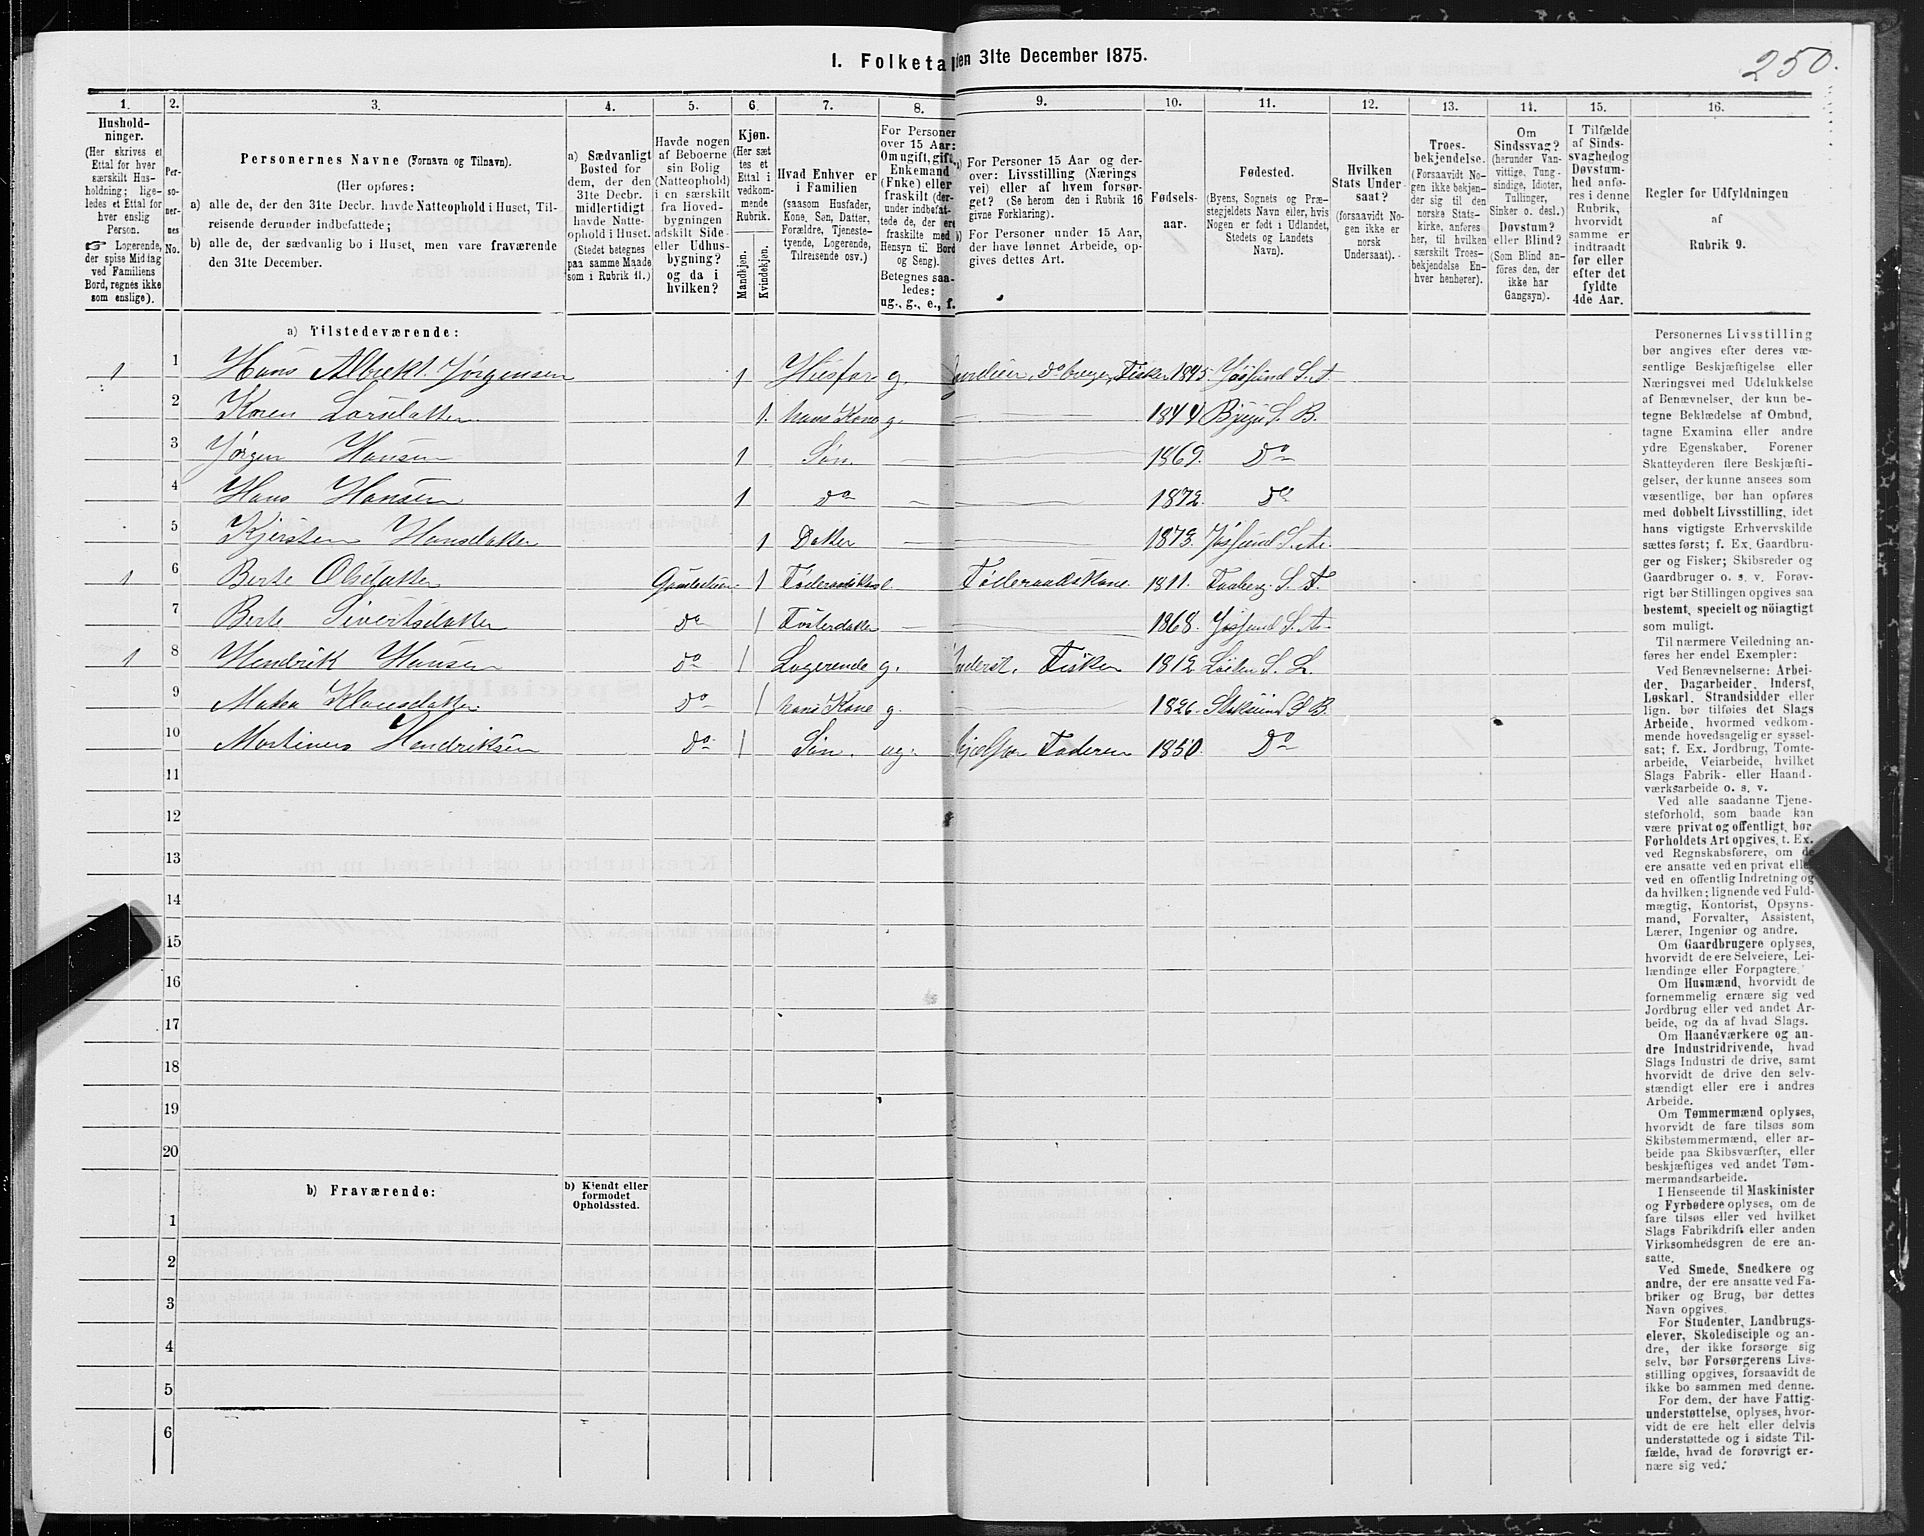 I. Folketal den 31te December 1875.
250.
1. 2. 3. 4. 5. 6. 7. 8. 9. 10. 11. 12. 13. 14. 15. 16.
Hushold-
ninger.
(Her skrives et
Ettal for hver
særskilt Hus-
holdning; lige-
ledes et Ettal for
hver enslig
Person.
☞ Logerende,
der spise Middag
ved Familiens
Bord, regnes ikke
som enslige).
Per-
so-
ner-
nes
No.
Personernes Navne (Fornavn og Tilnavn).
(Her opføres:
a) alle de, der den 31te Decbr. havde Natteophold i Huset, Til-
reisende derunder indbefattede;
b) alle de, der sædvanlig bo i Huset, men vare fraværende
den 31te December.
a) Sædvanligt
Bosted for
dem, der den
31te Decbr.
midlertidigt
havde Natte-
ophold i Huset.
(Stedet betegnes
paa samme Maade
som i Rubrik 11.)
Havde nogen
af Beboerne
sin Bolig
(Natteophold)
i en særskilt
fra Hoved-
bygningen
adskilt Side-
eller Udhus-
bygning?
og da i
hvilken?
Kjøn.
(Her sæt
tes et
Ettal i
vedkom-
mende
Rubrik.
Mandkjøn.
Kvindekjøn.
Hvad Enhver er
i Familien
(saasom Husfader,
Kone, Søn, Datter,
Forældre, Tjeneste-
tyende, Logerende,
Tilreisende osv.)
For Personer
over 15 Aar:
Om ugift, gift,
Enkemand
(Enke) eller
fraskilt (der-
under indbefat-
tede de, der ere
fraskilte med
Hensyn til Bord
og Seng).
Betegnes saa-
ledes:
ug., g., e., f.
a) For Personer 15 Aar og der-
over: Livsstilling (Nærings
vei) eller af hvem forsør-
get? (Se herom den i Rubrik 16
givne Forklaring).
b) For Personer under 15 Aar,
der have lønnet Arbeide, op-
gives dettes Art.
Fødsels-
aar.
Fødested.
(Byens, Sognets og Præ-
stegjeldets Navn eller, hvis
Nogen er født i Udlandet,
Stedets og Landets
Navn).
Hvilken
Stats Under-
saat?
(forsaavidt No-
gen ikke er
norsk
Undersaat).
Troes-
bekjendelse.
(Forsaavidt No-
gen ikke bekjen-
der sig til den
norske Stats-
kirke, anføres
her, til hvilken
særskilt Troes-
bekjendelse En-
hver henhører).
Om
Sindssvag?
(herunder Van-
vittige, Tung-
sindige, Idioter,
Tullinger,
Sinker o. desl.)
Døvstum?
eller Blind?
(Som Blind an-
føres den, der
ikke har
Gangsyn).
I Tilfælde
af Sinds-
svaghed og
Døvstum-
hed anfø-
res i denne
Rubrik,
hvorvidt
samme er
indtraadt
før eller
efter det
fyldte
4de Aar.
Regler for Udfyldningen
af
Rubrik 9.
a) Tilstedeværende:
1 1 Hans Albrekt. Jørgensen 1 Husfar g. Fisker 1845 Jøssund S. A.
2 Karen Larsdatter 1. hans Kone g. 1844 Bjugn S. B.
3 Jørgen Hansen 1 Søn. 1869. Do
4 Hans Hansen 1 do 1872. Do
5 Kjersten Hansdatter 1 Datter 1873. Jøssund S. A.
1 6 Berte Olsdatter 1 Føderaadskone Føderaadskone 1811. S. F.
7 Berte Sivertsdatter do 1 Fosterdatter 1868. Jøssund S. A.
1 8 Hendrik Hansen do 1 Logerende g. Inderst. Fisker 1812 S. L.
9 Klausdatter do 1 hans Kone g. 1826. Stoksund S B.
10 Martinus Hendriksen do 1 Søn. ug. hjælper Faderen 1850. Do
11
12
13
14
15
16
17
18
19
20
b) Fraværende:
b) Kjendt eller
formodet
Opholdssted.
1
2
3
4
5
6
Personernes Livsstilling
bør angives efter deres væ-
sentlige Beskjæftigelse eller
Næringsvei med Udelukkelse
af Benævnelser, der kun be-
tegne Beklædelse af Ombud,
tagne Examina eller andre
ydre Egenskaber. Forener
Skatteyderen flere Beskjæfti-
gelser, der kunne ansees som
væsentlige, bør han opføres
med dobbelt Livsstilling, idet
hans vigtigste Erhvervskilde
sættes først; f. Ex. Gaardbru-
ger og Fisker; Skibsreder og
Gaardbruger o. s. v. Forøv-
rigt bør Stillingen opgives saa
bestemt, specielt og nöiagtigt
som muligt.
Til nærmere Veiledning an-
føres her endel Exempler:
Ved Benævnelserne: Arbei-
der, Dagarbeider, Inderst,
Løskarl, Strandsidder eller
lign. bør tilføies det Slags
Arbeide, hvormed vedkom-
mende hovedsagelig er syssel-
sat; f. Ex. Jordbrug, Tomte-
arbeide, Veiarbeide, hvilket
Slags Fabrik- eller Haand-
værksarbeide o. s. v.
Ved alle saadanne Tjene-
steforhold, som baade kan
være privat og offentligt, bør
Forholdets Art opgives, t. Ex.
ved Regnskabsførere, om de
ere ansatte ved en privat eller
ved en offentlig Indretning og
da hvilken; lignende ved Fuld-
mægtig, Kontorist, Opsyns-
mand, Forvalter, Assistent,
Lærer, Ingeniør og andre.
Om Gaardbrugere oplyses,
hvorvidt de ere Selveiere, Lei-
lændinge eller Forpagtere.
Om Husmænd, hvorvidt de
fornemmelig ernære sig ved
Jordbrug eller ved andet Ar-
beide, og da af hvad Slags.
Om Haandværkere og an-
dre Industridrivende, hvad
Slags Industri de drive, samt
hvorvidt de drive den selv-
stændigt eller ere i andres
Arbeide.
Om Tømmermænd oplyses,
hvorvidt de fare tilsøs som
Skibstømmermænd, eller ar-
beide paa Skibsværfter, eller
beskjæftiges ved andet Tøm-
mermandsarbeide.
I Henseende til Maskinister
og Fyrbødere oplyses, om de
fare tilsøs eller ved hvilket
Slags Fabrikdrift eller anden
Virksomhedsgren de ere an-
satte.
Ved Smede, Snedkere og
andre, der ere ansatte ved Fa-
briker og Brug, bør dettes
Navn opgives.
For Studenter, Landbrugs-
elever, Skoledisciple og an-
dre, der ikke forsørge sig
selv, bør Forsørgerens Livs-
stilling opgives, forsaavidt de
ikke bo sammen med denne.
For dem, der have Fattig-
understøttelse, oplyses, hvor-
vidt de ere helt eller delvis
understøttede og i sidste Til-
fælde, hvad de forøvrigt er-
nære sig ved.